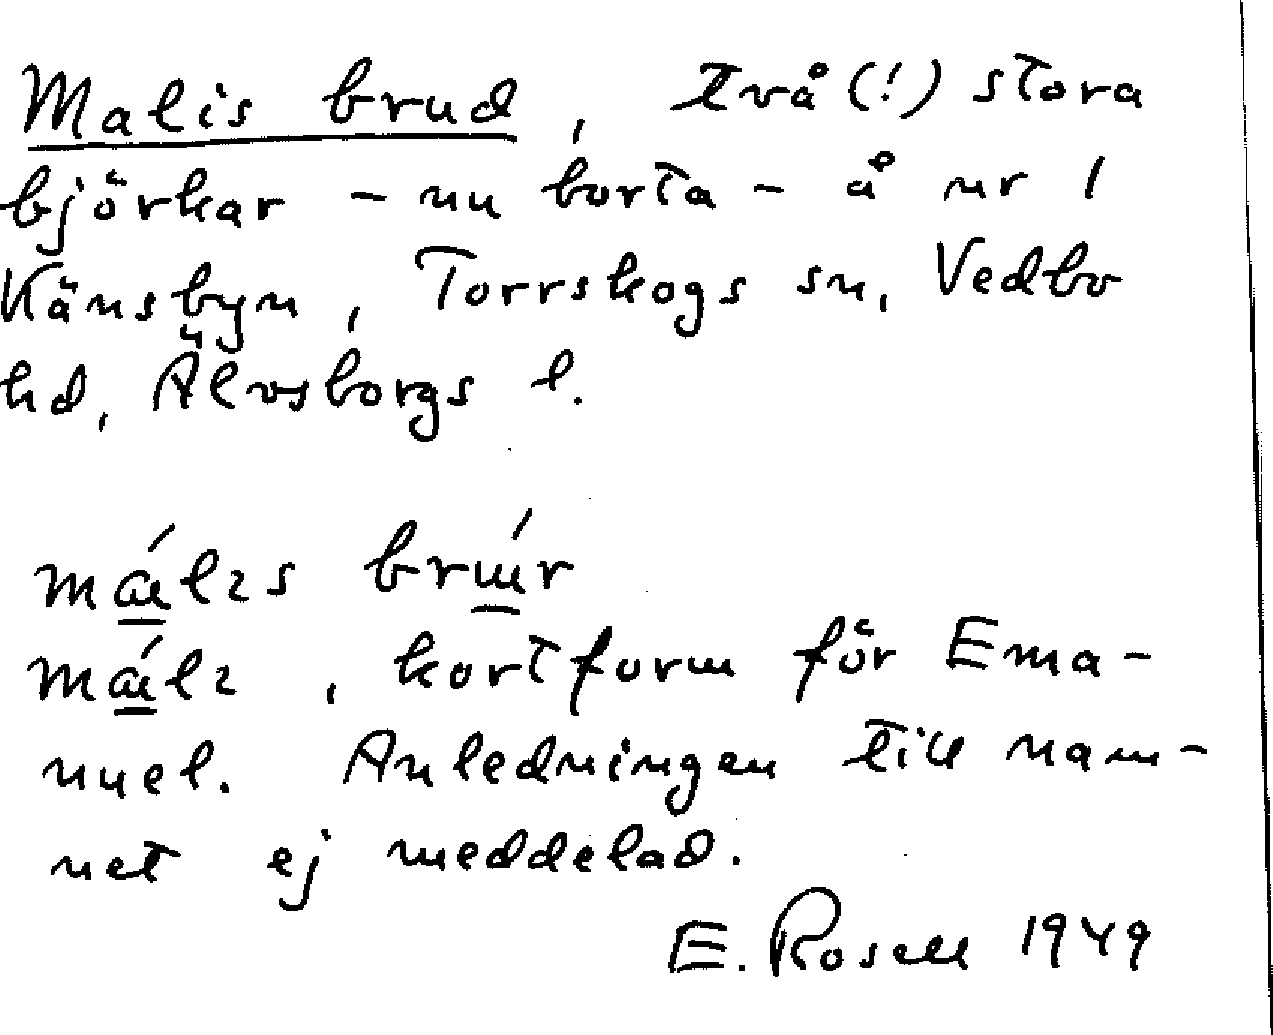 Malis brud, två (!) stora
björkar - nu borta - å nr 1
Känsbyn, Torrskogs sn, Vedbo
hd, Älvsborgs l.
brɯ́r
, kortform för Ema-
nuel. Anledningen till nam-
net ej meddelad.
E. Rosell 1949